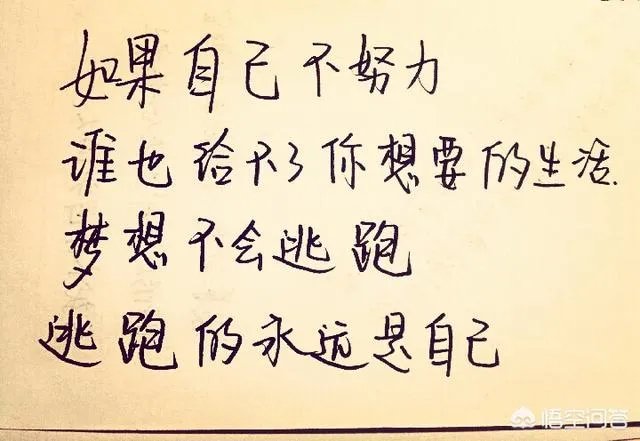 如果自己不努力
谁也给不了你想要的生活.
梦想不会逃跑
逃跑的永远是自己
悟空问答